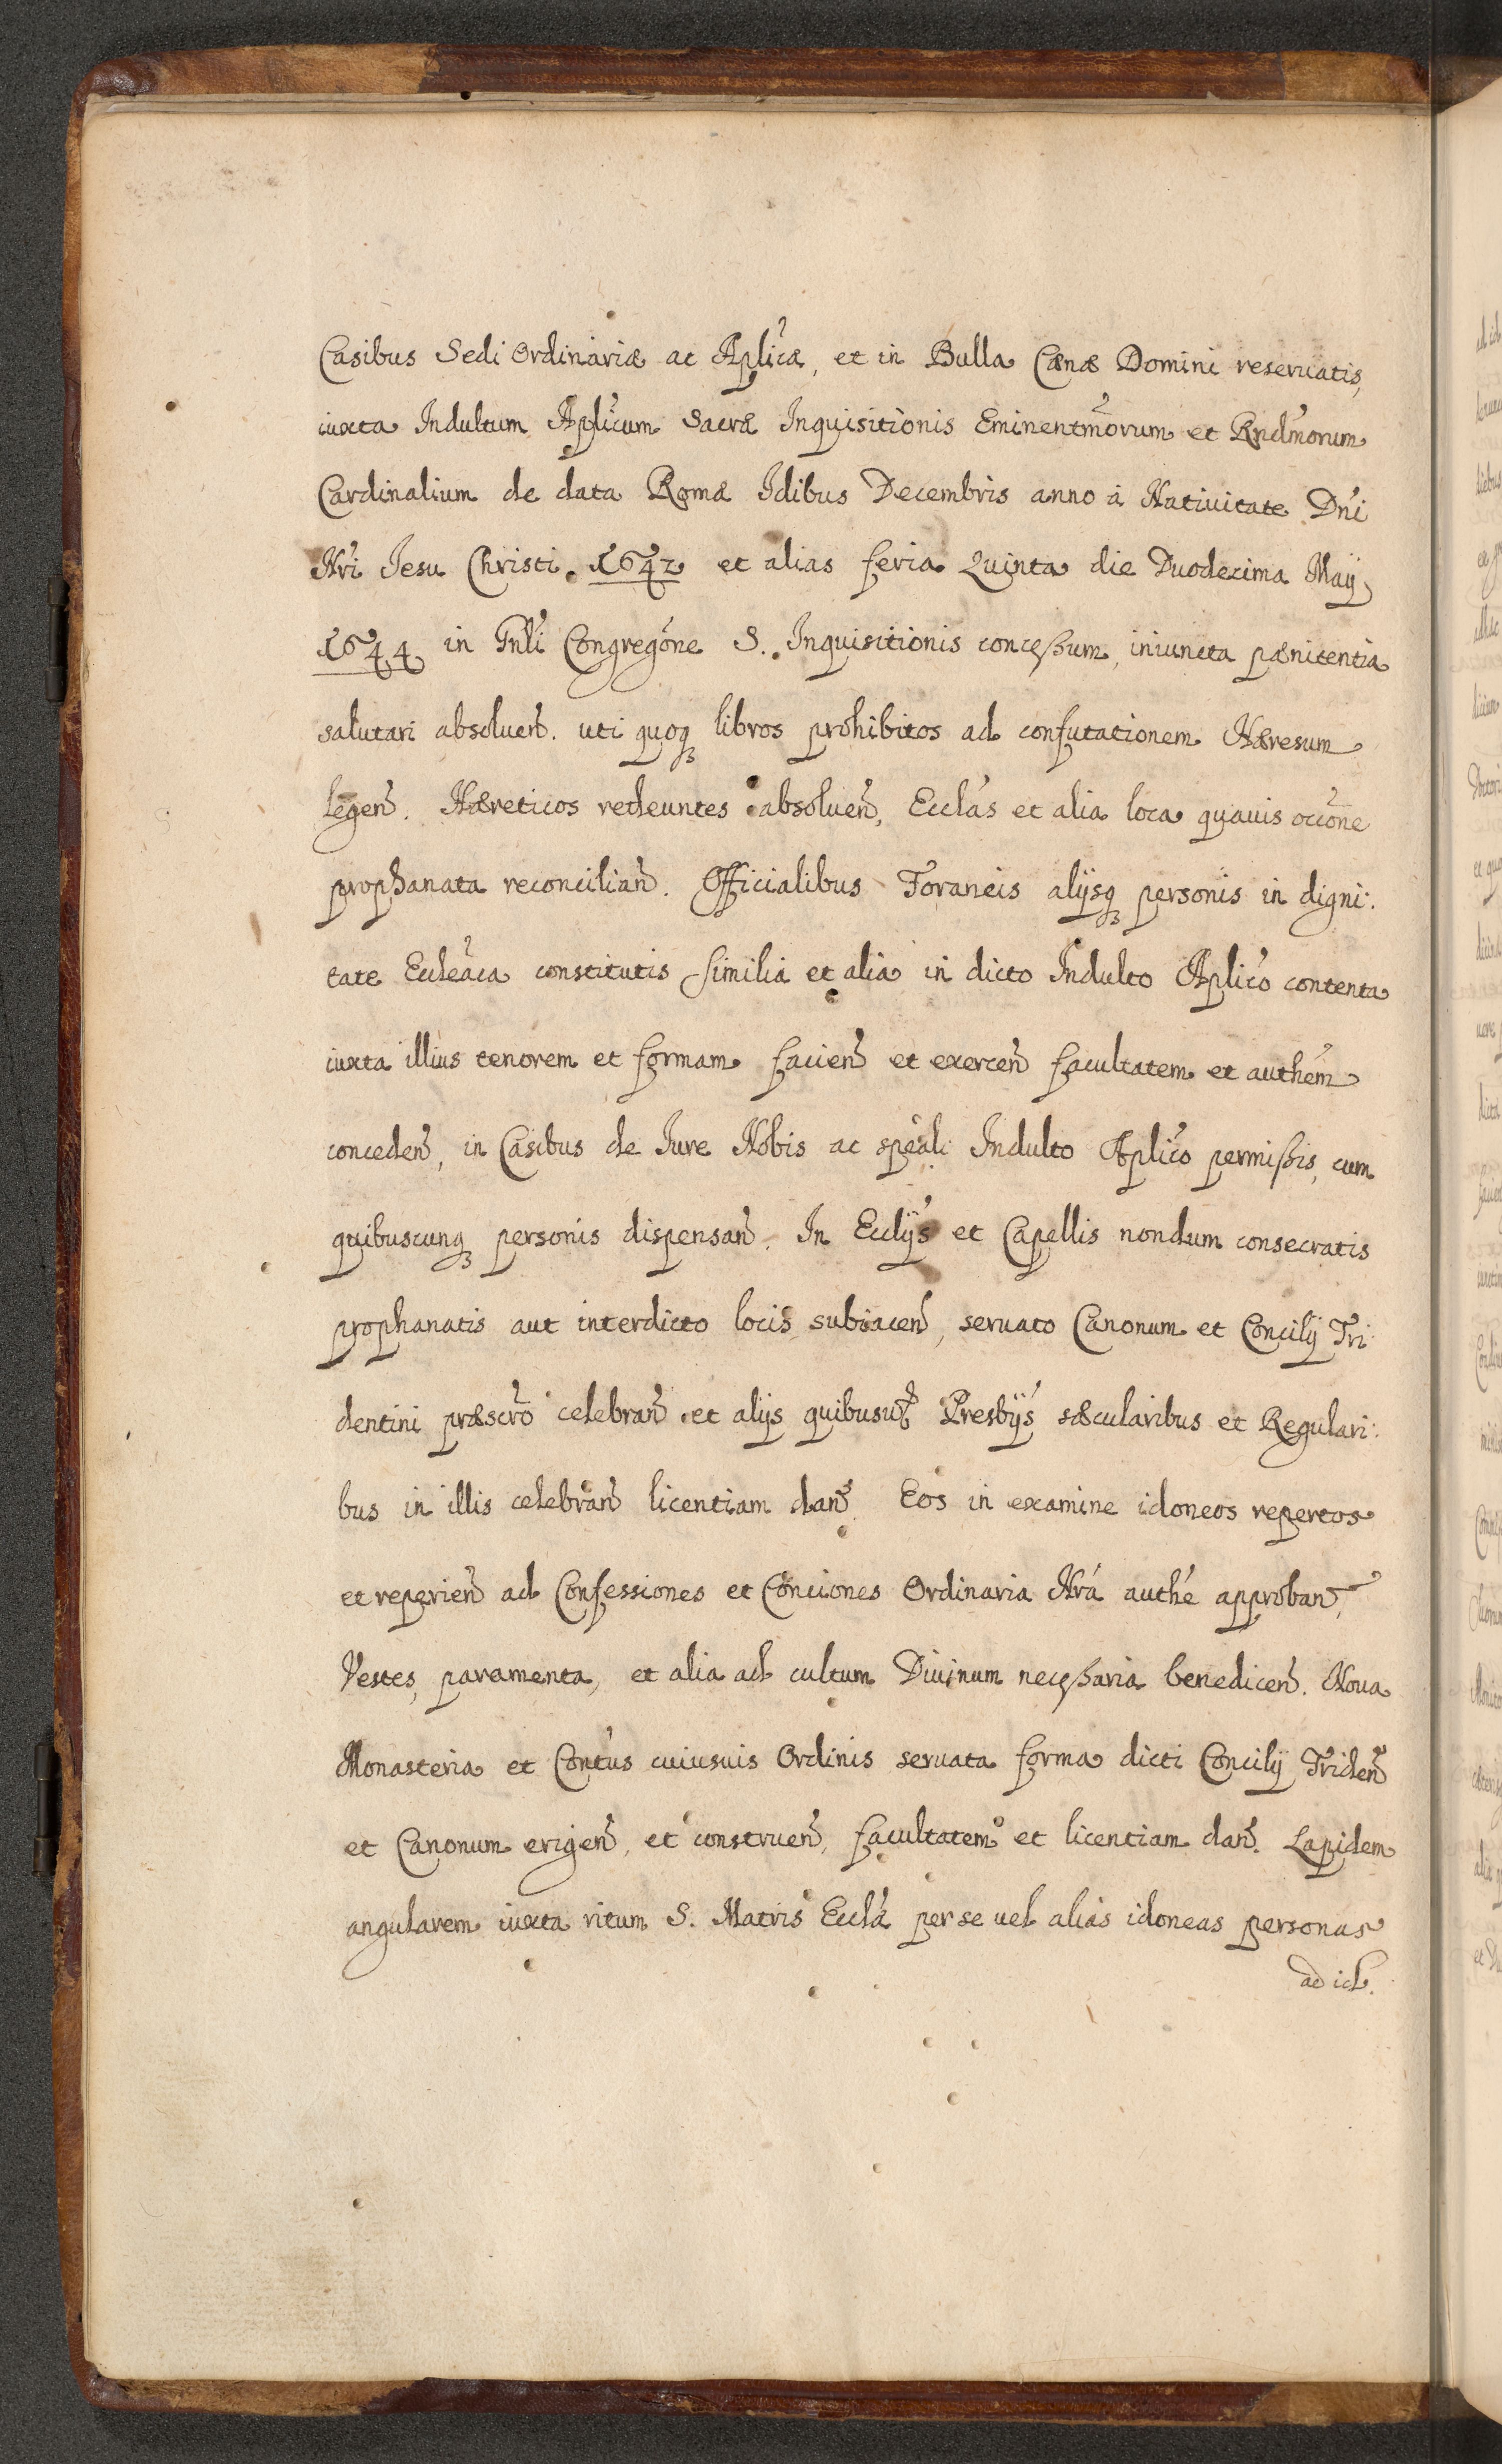 Casibus Sedi Ordinariæ ac Aplicæ, et in Bulla Cænæ Domini reseruatis,
iuxta Indultum Aplicum Sacræ Inquisitionis Eminentmorum et Rndmorum
Cardinalium de data Romæ Idibus Decembris anno à Natiuitate Dni
Nri Iesu Christi. 1642 et alias feria Quinta die Duodecima Maÿ
1644 in Gnli Congregone S. Inquisitionis conceßum, iniuncta pænitentia
salutari absoluen. uti quoq libros prohibitos ad confutationem Hæresum
legen. Hæreticos redeuntes absoluen, Ecclas et alia loca quauis occone
prophanata reconcilian. Officialibus Foraneis alijsq personis in digni:
tate Eccleaca constitutis similia et alia in dicto Indulto Aplico contenta
iuxta illius tenorem et formam facien et exercen facultatem et authem
conceden, in Casibus de Iure Nobis ac speali Indulto Aplico permißis, cum
quibuscunq personis dispensan. In Ecclÿs et Capellis nondum consecratis
prophanatis aut interdicto locis subiacen, seruato Canonum et Concilÿ Tri:
dentini præscro celebran et alijs quibusuis Presbÿs sæcularibus et Regulari:
bus in illis celebran licentiam dan. Eos in examine idoneos repertos
et reperien ad Confessiones et Conciones Ordinaria Nra authe approban,
Vestes, paramenta, et alia ad cultum Diuinum neceßaria benedicen. Noua
Monasteria et Contus cuiusuis Ordinis seruata forma dicti Concilÿ Triden
et Canonum erigen, et construen, facultatem et licentiam dan. Lapidem
angularem iuxta ritum S. Matris Ecclæ per se uel alias idoneas personas
ad id.